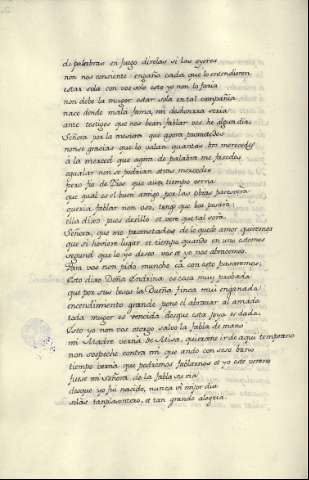 de palabras en juego direlas si las oyeres
non nos consiente engaño cada que lo entendieren
estar sola con vos solo esto yo non lo faria
non debe la muger estar sola en tal compañia
nace dende mala fama, mi deshonrra seria
ante testigos que nos vean fablar vos he algun dia
Señora por la mesura que agora prometedes
non se gracias que lo valan quantas vos merecedes
á la merced que agora de palabra me facedes
egualar non se podrian otras mercedes
pero fio de Dios que aun tiempo verna
que qual es el buen amigo por las obras parescera
querria fablar non oso, tengo que bos pesará
ella dixo pues desidlo et vere que tal será
Señora, que me prometades de lo que de amor queremos
que si hoviere lugar et tiempo quando en uno estemos
segund que lo yo deseo vos et yo nos abracemos
Para vos non pido mucho cá con esto pasaremos
Esto dixo Doña Endrina es cosa muy probada
que por sus besos la Dueña finca muy engañada
encendimiento grande pone el abrazar al amada
toda muger es vencida desque esta joya es dada
Esto yo non vos otorgo salvo la fabla de mano
mi Madre verná de Misa, quierome ir de aqui temprano
non sospeche contra mi que ando con seso vano
tiempo verná que podremos fablarnos et yo este verano
fuese mi señora de la fabla su via
desque yo fui nacido, nunca vi mejor dia
solás tan placentero, et tan grande alegria